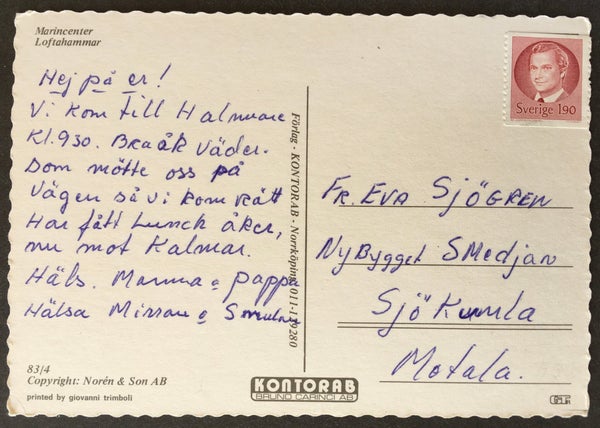 Marincenter
Loftahammar
Hej på er!
Vi kom till Halmvare
Kl. 930. Braåk Väder.
Dom mötte oss på
Vägen så vi kom rätt
Har fått Lunch åker,
nu mot Kalmar.
Häls. Mamma o pappa
Hälsa Mirran o
83/4
Copyright: Norén & Son AB
printed by giovanni trimboli
Förlag - KONTORAB - Norrköping 011-119280
KONTORAB
BRUNO CARINCI AB
Sverige 190
Fr. Eva SJÖGREN
Nybygget Smedjan
Sjökumla
Motala.